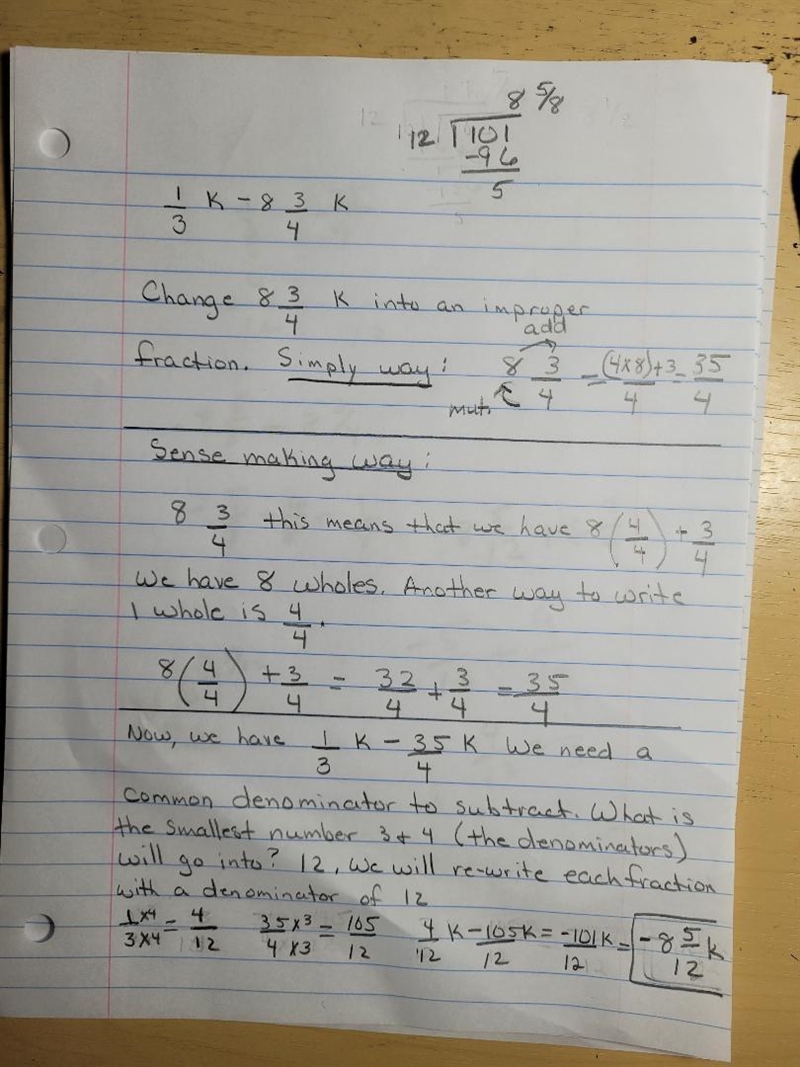 8 5/8
12 √101
-96
5
1/3 K - 8 3/4 K
Change 8 3/4 K into an improper
add
fraction. Simply way: 8 3/4 = (4x8)+3/4 = 35/4
mult
Sense making way:
8 3/4 this means that we have 8(4/4) + 3/4
We have 8 wholes. Another way to write
1 whole is 4/4.
8(4/4) + 3/4 = 32/4 + 3/4 = 35/4
Now, we have 1/3 K - 35/4 K We need a
common denominator to subtract. What is
the smallest number 3 & 4 (the denominators)
will go into? 12, We will re-write each fraction
with a denominator of 12
1x4/3x4 = 4/12 35x3/4x3 = 105/12 4/12 K - 105K/12 = -101K/12 = -8 5/12 K